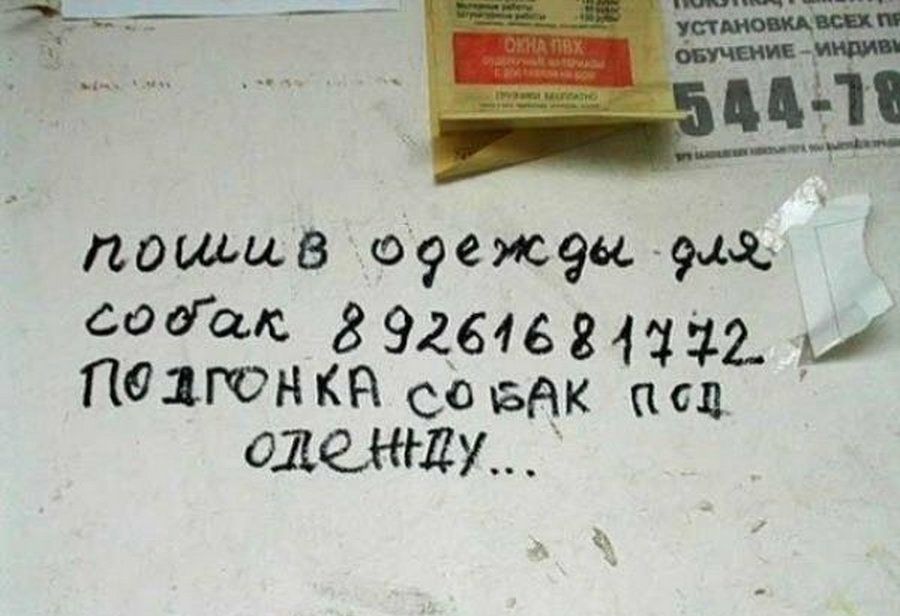 ОКНА ПВХ
УСТАНОВКА ВСЕХ
ОБУЧЕНИЕ –
544-78
пошив одежды для
собак 89261681772
ПОДГОНКА СОБАК ПОД
ОДЕЖДУ...